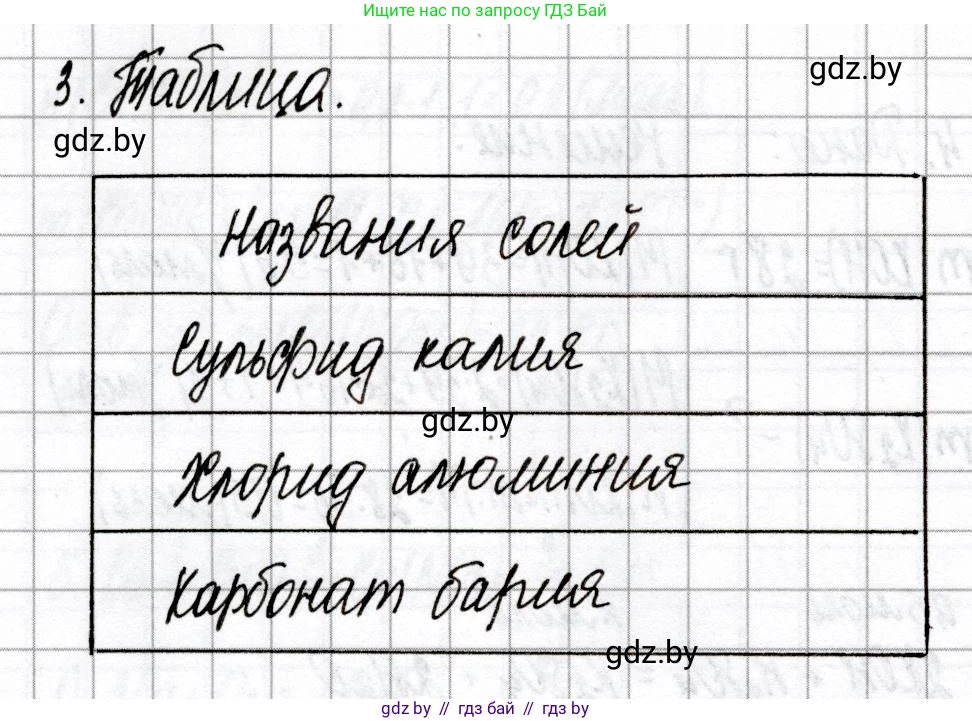 Ищите нас по запросу ГДЗ Бай
3. Таблица.
gdz.by
gdz.by
Названия солей
Сульфид калия
gdz.by
Хлорид алюминия
Карбонат бария
gdz.by
gdz by // гдз бай // гдз by